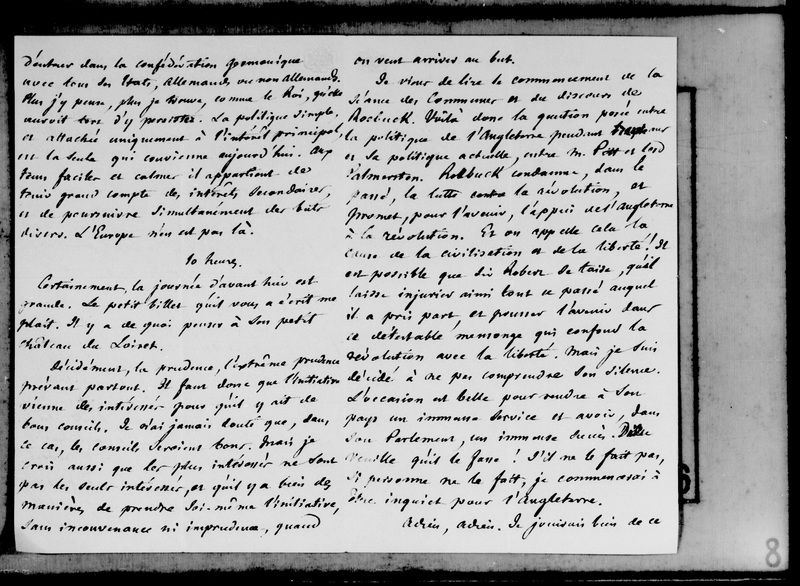 d'entrer dans la confédération germanique
avec tous ses Etats, allemands ou non allemands.
Plus j'y pense, plus je trouve, comme le Roi, qu'elle
auroit tort d'y persister. La politique simple,
et attachée uniquement à l'intérêt principal,
est la seule qui convienne aujourd'hui. Aux
tems faciles et calmes il appartient de
tenir grand compte des intérêts secondaires,
et de poursuivre simultanément des buts
divers. L'Europe n'en est pas là.
10 heures.
Certainement, la journée d'avant hier est
grande. Le petit billet qu'il vous a écrit me
plait. Il y a de quoi penser à son petit
château du Loiret.
Décidément, la prudence, l'extrême prudence
prévaut partout. Il faut donc que l'initiative
vienne des intéressés pour qu'il y ait de
bons conseils. Je n'ai jamais douté que, dans
ce cas, les conseils seroient bons. Mais je
crois aussi que les plus intéressés ne sont
pas les seuls intéressés, et qu'il y a bien des
manières de prendre soi-même l'initiative,
sans inconvenance ni imprudence, quand
on veut arriver au but.
Je viens de lire le commencement de la
séance des Communes et du discours de
Roebuck. Voilà donc la question posée entre
la politique de l'Angleterre pendant
et sa politique actuelle, entre M. Pitt et lord
Palmerston. Roebuck condamne, dans le
passé, la lutte contre la révolution, et
promet, pour l'avenir, l'appui de l'Angleterre
à la révolution. Et on appelle cela la
cause de la civilisation et de la liberté! Il
est possible que Sir Robert se taise, qu'il
laisse injurier ainsi tout ce passé auquel
il a pris part et pousser l'avenir dans
ce détestable mensonge qui confond la
révolution avec la liberté. Mais je suis
décidé à ne pas comprendre son silence.
L'occasion est belle pour rendre à son
pays un immense service et avoir, dans
son Parlement, un immense succès. Dieu
veuille qu'il le fasse! S'il ne le fait pas,
si personne ne le fait, je commencerai à
être inquiet pour l'Angleterre.
Adieu, adieu. Je jouissais bien de ce
8